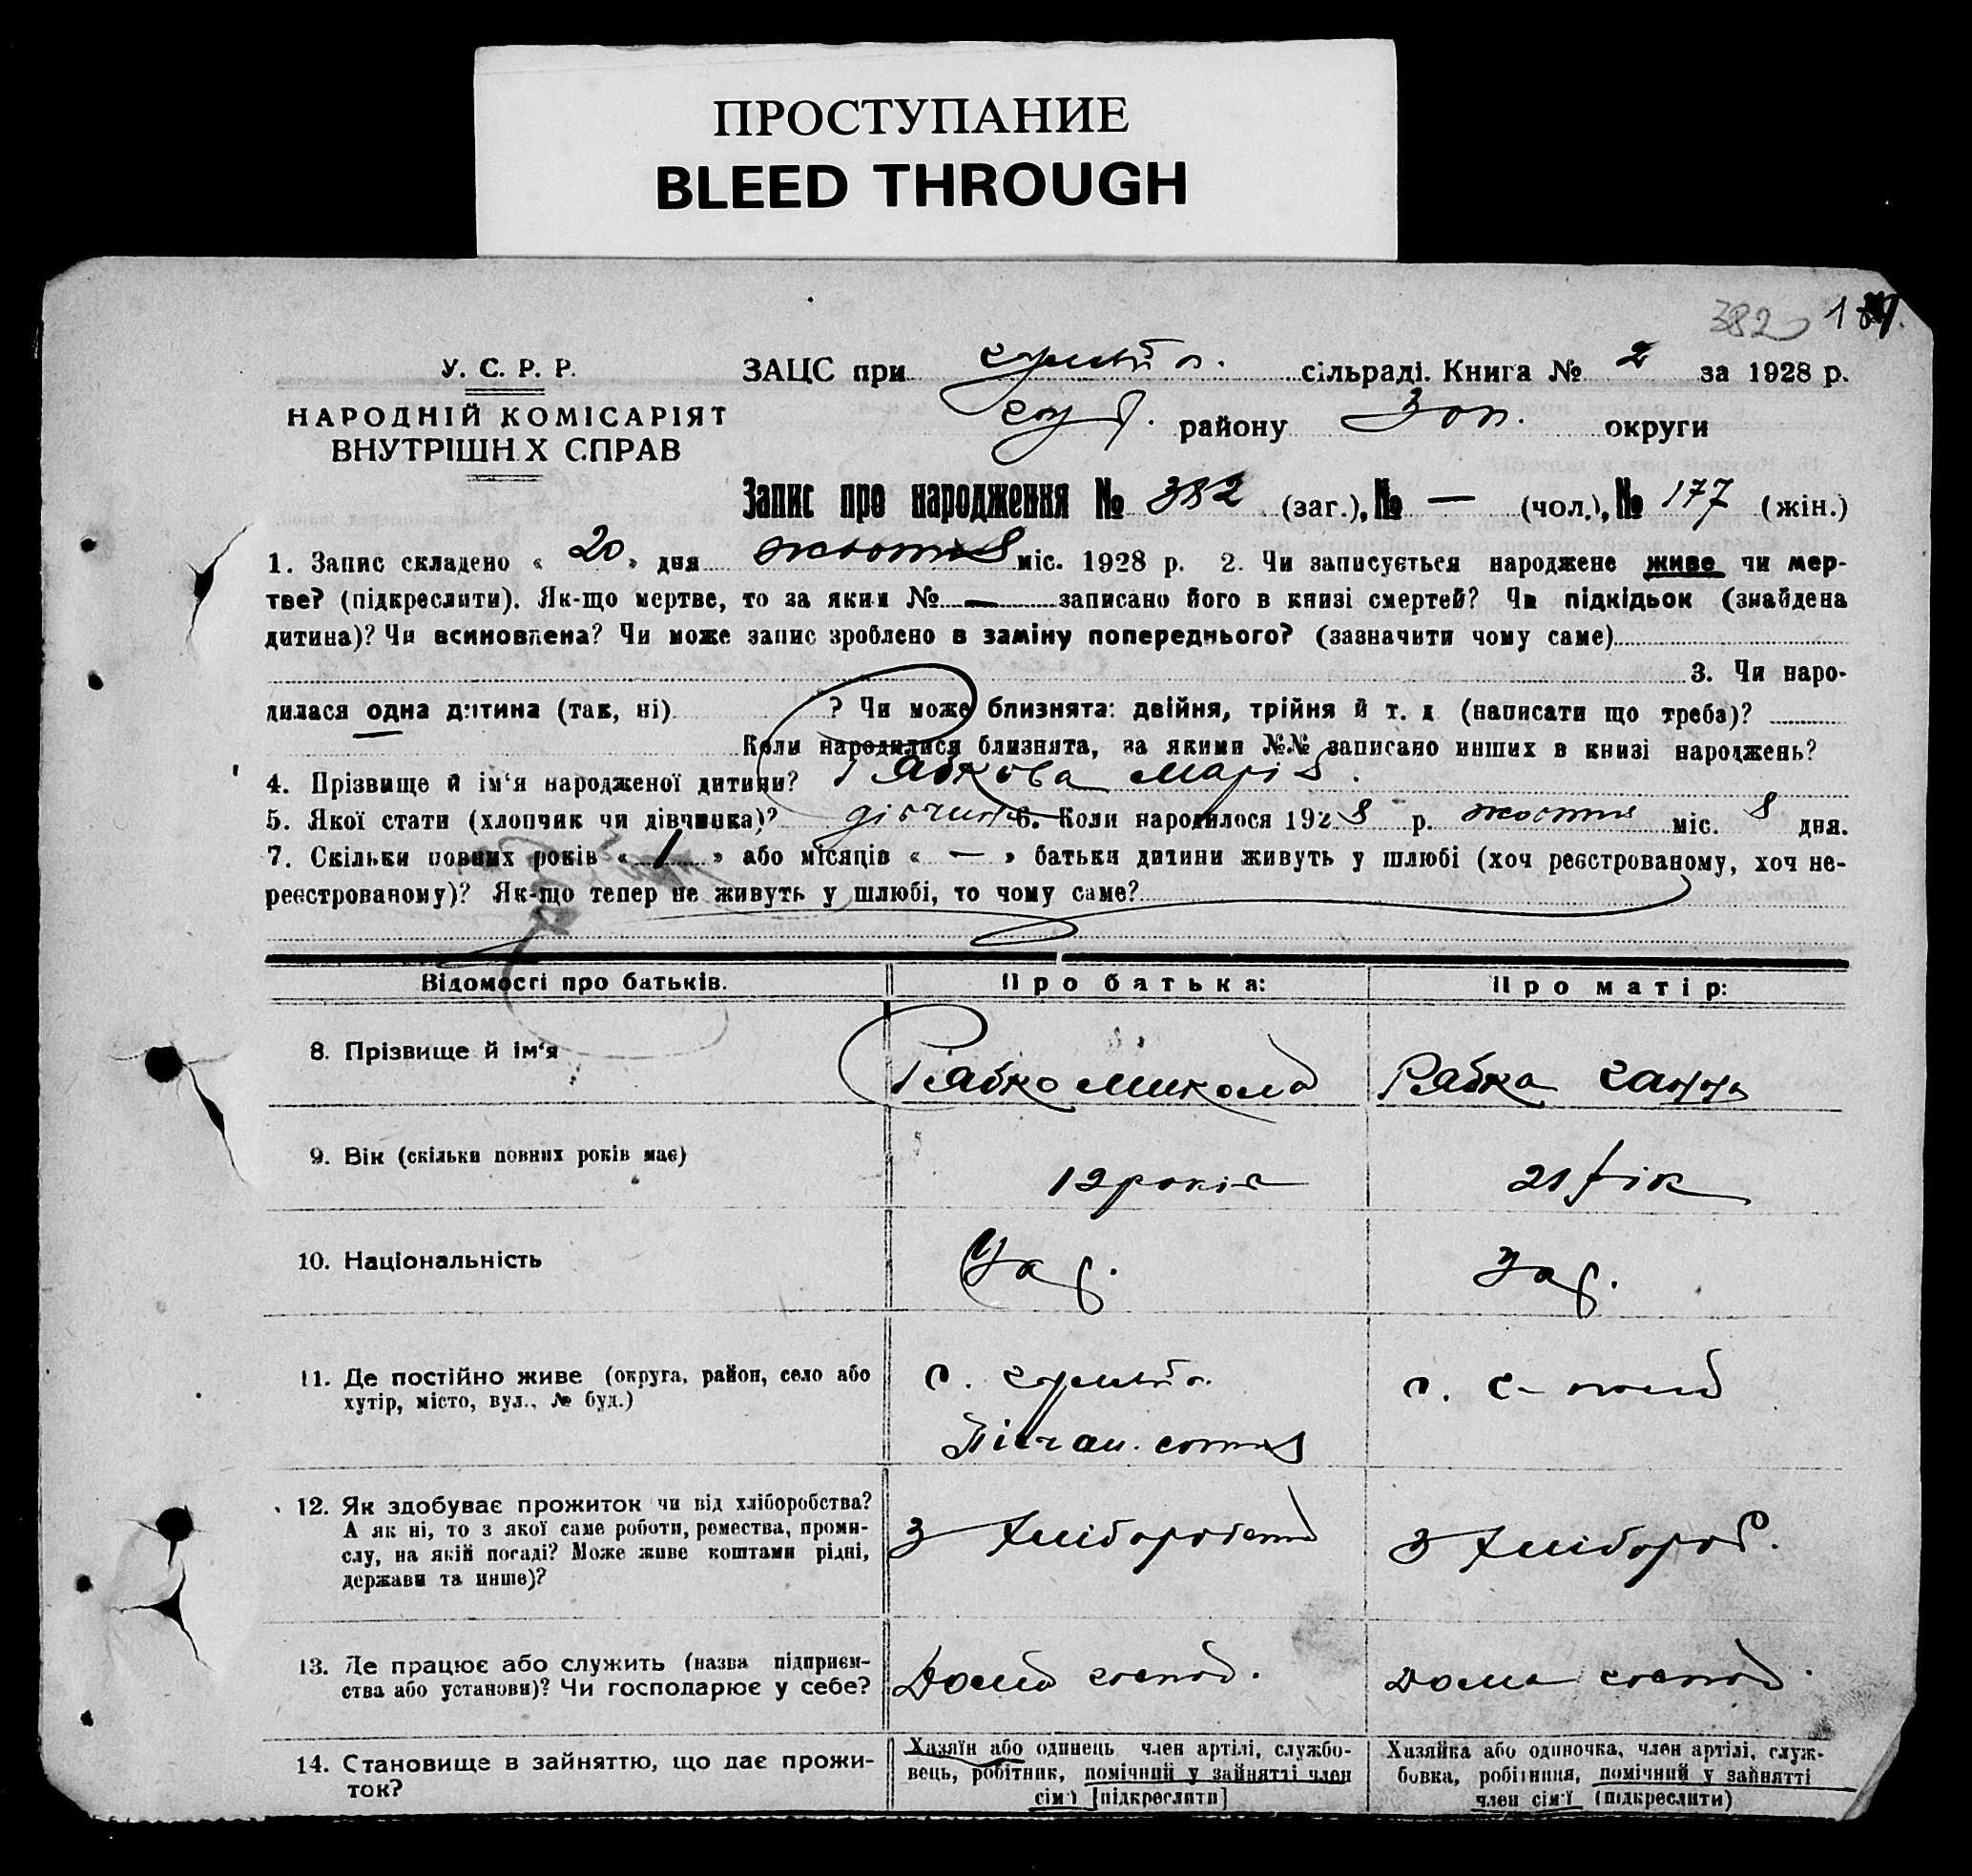 ПРОСТУПАНИЕ
BLEED THROUGH
382
У. С. Р. Р.
НАРОДНІЙ КОМІСАРІЯТ
ВНУТРІШН Х СПРАВ
ЗАЦС при сільраді. Книга № 2 за 1928 р.
району округи
Запис про народження № 382 (заг.), № — (чол.), № 177 (жін.)
1. Запис складено « 20 » дня жовтня міс. 1928 р. 2. Чи записується народжене живе чи мер-
тве? (підкреслити). Як-що мертве, то за яким № — записано його в книзі смертей? Чи підкідьок (знайдена
дитина)? Чи всиновлена? Чи може запис зроблено в заміну попереднього? (зазначити чому саме)
3. Чи наро-
дилася одна дитина (так, ні) ? Чи може близнята: двійня, трійня й т. д. (написати що треба)?
Коли народилися близнята, за якими №№ записано инших в книзі народжень?
4. Прізвище й ім‘я народженої дитини? Рябкова Марія.
5. Якої стати (хлопчик чи дівчинка)? дівчина 6. Коли народилося 1928 р. жовтня міс. 8 дня.
7. Скільки повних років « 1 » або місяців « — » батьки дитини живуть у шлюбі (хоч реєстрованому, хоч не-
реєстрованому)? Як-що тепер не живуть у шлюбі, то чому саме?
Відомості про батьків. Про батька: Про матір:
8. Прізвище й ім‘я Рябко Микола Рябка Ганна
9. Вік (скільки повних років має) 19 років 21 рік
10. Національність Укр. Укр.
11. Де постійно живе (округа, район, село або
хутір, місто, вул., № буд.)
Піщан. сотня
12. Як здобуває прожиток чи від хліборобства? З хліборобства З хлібороб.
А як ні, то з якої саме роботи, ремества, проми-
слу, на якій посаді? Може живе коштами рідні,
держави та инше)?
13. Де працює або служить (назва підприєм-
ства або установи)? Чи господарює у себе? Дома господ. Дома господ.
14. Становище в зайняттю, що дає прожи-
ток?
Хазяїн або одинець, член артілі, службо-
вець, робітник, помічний у зайнятті член
сім‘ї [підкреслити]
Хазяйка або одиночка, член артілі, служ-
бовка, робітниця, помічний у зайнятті
член сім‘ї (підкреслити)